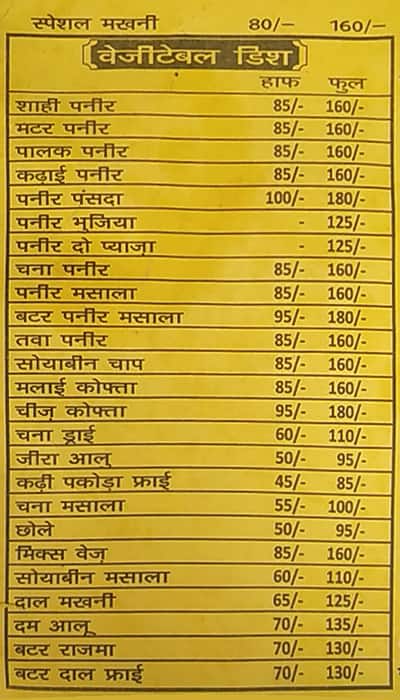 स्पेशल मखनी 80/- 160/-
वेजीटेबल डिश
हाफ फुल
शाही पनीर 85/- 160/-
मटर पनीर 85/- 160/-
पालक पनीर 85/- 160/-
कढ़ाई पनीर 85/- 160/-
पनीर पंसदा 100/- 180/-
पनीर भुजिया - 125/-
पनीर दो प्याज़ा - 125/-
चना पनीर 85/- 160/-
पनीर मसाला 85/- 160/-
बटर पनीर मसाला 95/- 180/-
तवा पनीर 85/- 160/-
सोयाबीन चाप 85/- 160/-
मलाई कोफ्ता 85/- 160/-
चीज़ कोफ्ता 95/- 180/-
चना ड्राई 60/- 110/-
जीरा आलू 50/- 95/-
कढ़ी पकोड़ा फ्राई 45/- 85/-
चना मसाला 55/- 100/-
छोले 50/- 95/-
मिक्स वेज़ 85/- 160/-
सोयाबीन मसाला 60/- 110/-
दाल मखनी 65/- 125/-
दम आलू 70/- 135/-
बटर राजमा 70/- 130/-
बटर दाल फ्राई 70/- 130/-